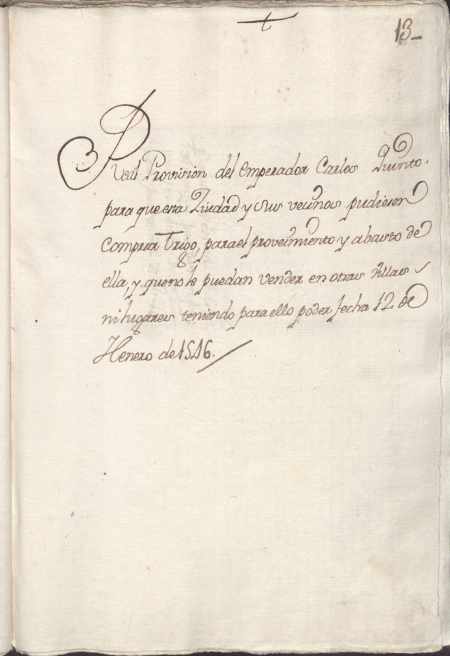 13
Real Provision del Emperador Carlos Quinto,
para que esta Ziudad y sus vecinos pudiesen
comprar Trigo, para el proveimiento y abasto de
ella, y que no le puedan vender en otras Villas
ni lugares teniendo para ello poder, fecha 12 de
Henero de 1516.